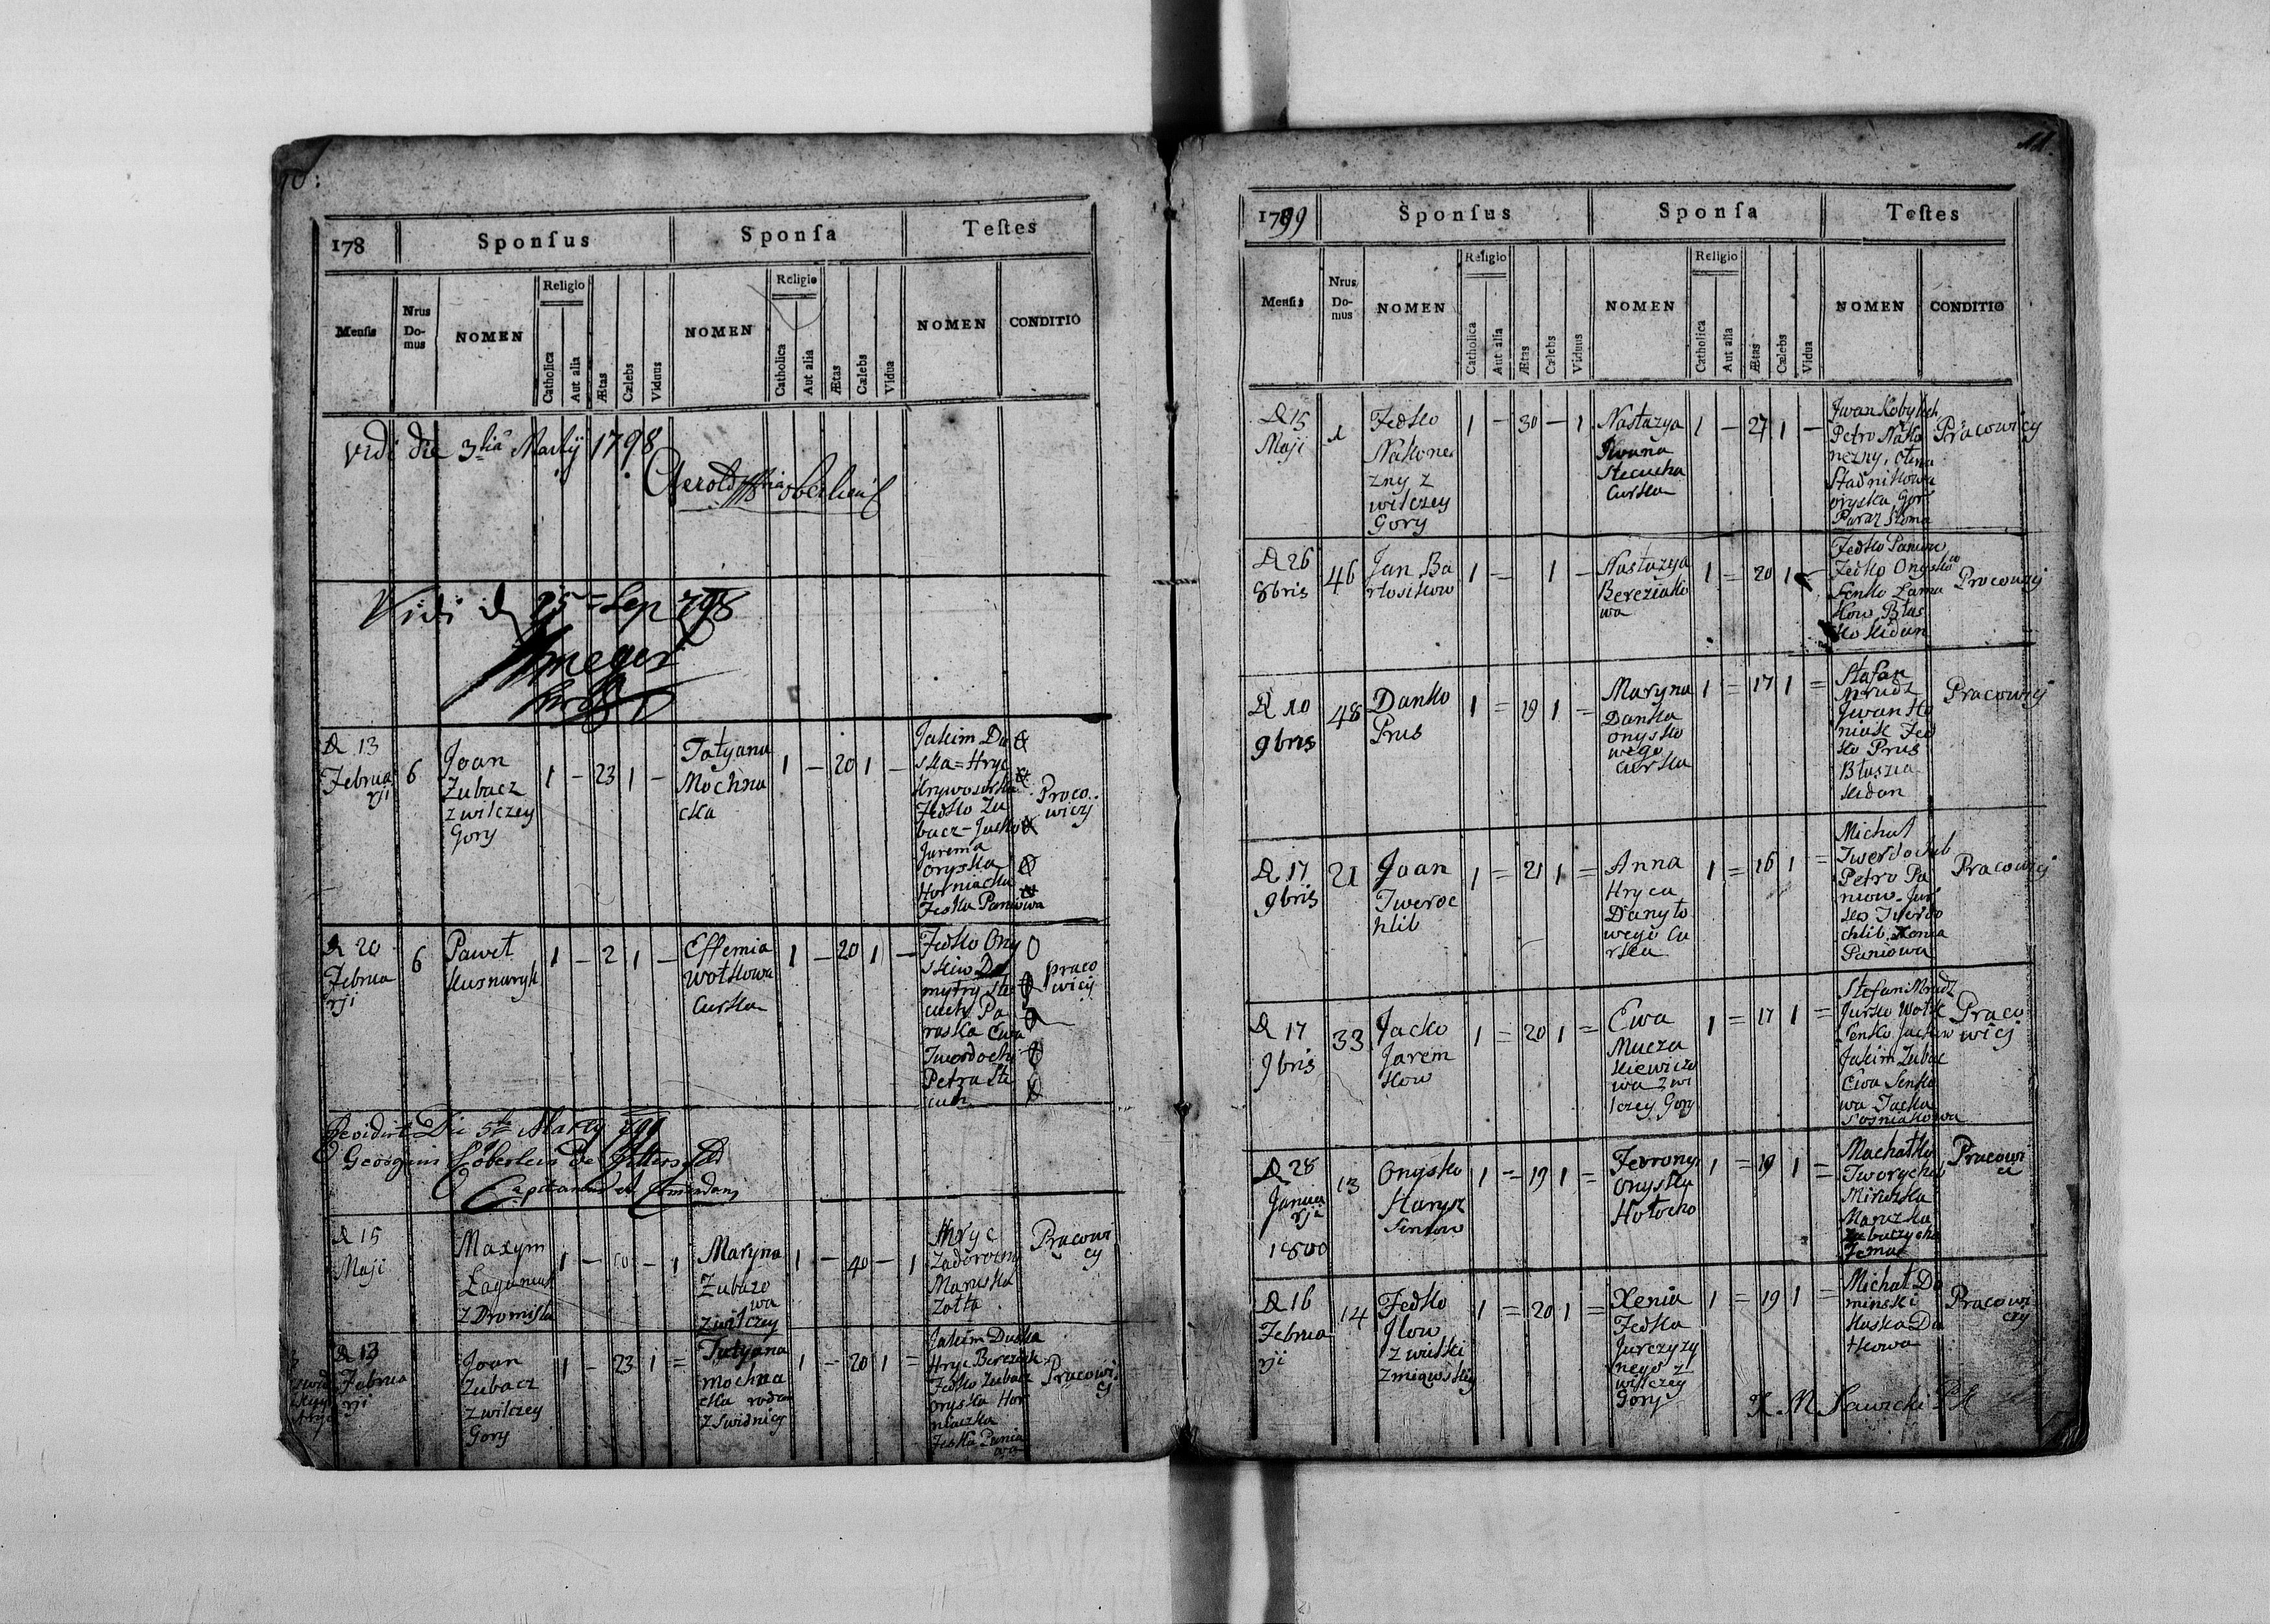 10:
178
Sponſus
Sponſa
Teſtes
Menſis
Nrus Do-mus
NOMEN
Religio
Catholica
Aut alia
Ætas
Cælebs
Viduus
NOMEN
Religio
Catholica
Aut alia
Ætas
Cælebs
Vidua
NOMEN
CONDITIO
Vidi die 3tia Martij 1798
Vidi d 25 Sep 798
D 13
Februa
rji
6
Joan
Zubacz
z wilczey
Gory
1 – 23 1 –
Tatyana
Mochna
cka
1 – 20 1 –
Jakim Du
ska = Hryc
Hrywoserka
Fedko Zu
bacz – Jacko
Jarema
oryska
Horniacka
Feska Paniowa
Praco
wiczj
D 20
Februa
rji
6
Paweł
Kusnaryk
1 – 2 1 –
Effemia
Wołkowa
Curka
1 – 20 1 –
Fedko Ony
skiw
mytry Ste
cuch Pa
raska Ewa
Twordochl
Petra Ste
cuch
praco
wicy
Revidirt Die 5ta Marty 799
D 15
Maji
Maxym
Łaganiuk
z Dromisla
1 – 50 – 1
Maryna
Zubazo
wa
z wilczey
1 – 40 – 1
Hryc
Zadorozny
Maruska
Zołta
Pracowi
cy
D 13
Februa
rji
Joan
Zubacz
z wilczey
Gory
1 – 23 1 =
Tatyana
mochna
cka rodem
z Swidnicy
1 – 20 1 =
Jakim Duska
Hryc Berezick
Fedko Zubacz
oryska Hor
niaczka
Feska Pania
wa
Pracowi
cy
11.
1799
Sponſus
Sponſa
Teſtes
Menſis
Nrus Do-mus
NOMEN
Religio
Catholica
Aut alia
Ætas
Cælebs
Viduus
NOMEN
Religio
Catholica
Aut alia
Ætas
Cælebs
Vidua
NOMEN
CONDITIO
D 15
Maji
1
Fedko
Nakone
zny z
wilczey
Gory
1 – 30 – 1
Nastazya
Iwana
Stecucha
Curka
1 – 27 1 –
Jwan Kobylech
Petro Nako
nezny, olena
Stadnikowa
oryska Gor
Pracowicy
D 26
8bris
46
Jan Ba
rtosikow
1 – 1 –
Nastazya
Bereziako
wa
1 = 20 1
Fedko Paniow
Fedko Onyskow
Senko Lama
kow Błas
ko Kidan
Pracowicj
D 10
9bris
48
Danko
Prus
1 = 19 1 =
Maryna
Danka
onysko
wego
curka
1 = 17 1 =
Stefan
Mrudz
Jwan Ho
niak Fed
ko Prus
Błaszia
Kidan
Pracowicj
D 17
9bris
21
Joan
Twerdc
hlib
1 = 21 1 =
Anna
Hryca
Danyło
wego Cu
rka
1 = 16 1 =
Michał
Twerdochlib
Petro Pa
niow – Jur
ko Twerdo
chlib. Xenia
Paniowa
Pracowicj
D 17
9bris
33
Jacko
Jarem
kow
1 = 20 1 =
Ewa
Mucza
kiewiczo
wa z wi
lczey Gory
1 = 17 1 =
Stefan Mrudz
Jurko Wołk
Senko Jackow
Jakim Zubac
Ewa Senko
wa Jacka
Sosniakowa
Praco
wicj
D 28
Janua
rji
1800
13
Onysko
Harysz
Senkow
1 = 19 1 =
Fevrony
onyska
Hołocho
1 = 19 1 =
Machatko
Tworychlib
Mirczka
Maruzka
Zabuczycha
Pracowi
ci
D 16
Februa
rji
14
Fedko
Ilow
z wielki
Zmigwskiy
1 = 20 1 =
Xenia
Fedka
Jurczyzy
nego z
wilczey
Gory
1 = 19 1 =
Michał Do
minski
Haska Da
tkowa
Pracowi
czy
X. M. Sawicki